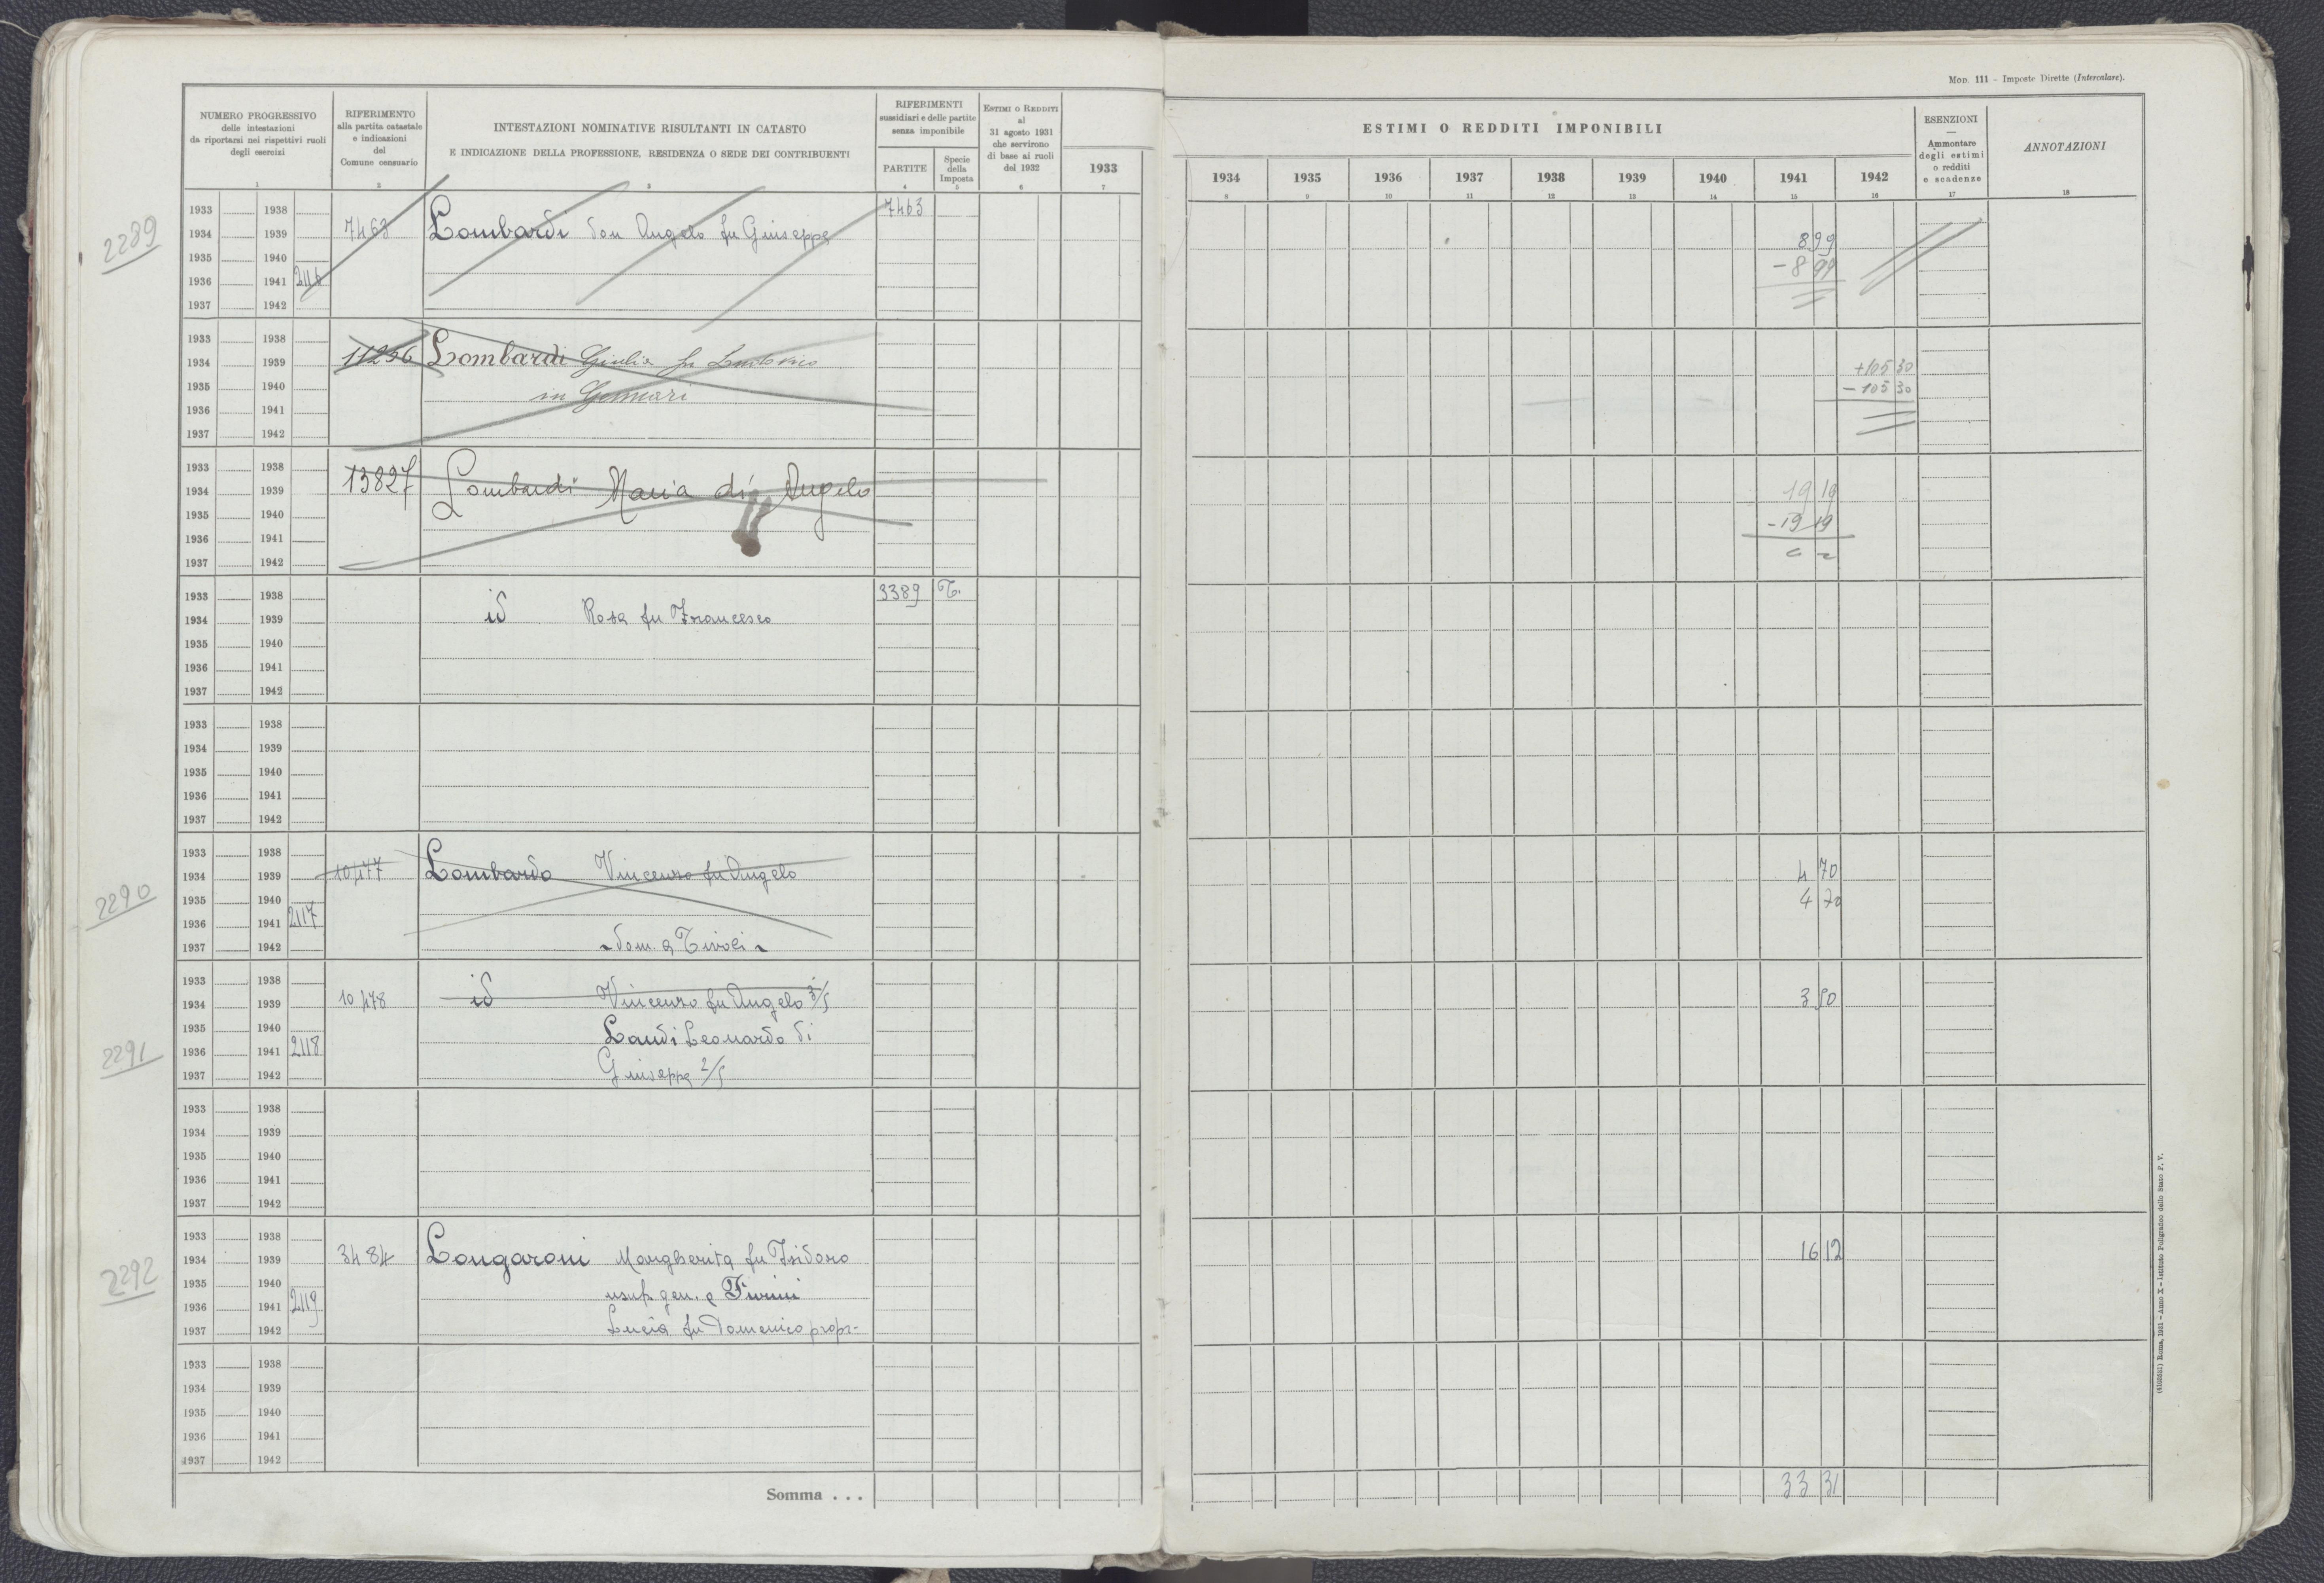 Mod. 111 - Imposte Dirette (Intercalare).
NUMERO PROGRESSIVO
delle intestazioni
da riportarsi nei rispettivi ruoli
degli esercizi
1
RIFERIMENTO
alla partita catastale
e indicazioni
del
Comune censuario
2
INTESTAZIONI NOMINATIVE RISULTANTI IN CATASTO
E INDICAZIONE DELLA PROFESSIONE, RESIDENZA O SEDE DEI CONTRIBUENTI
3
RIFERIMENTI
sussidiari e delle partite
senza imponibile
PARTITE
4
Specie
della
Imposta
5
Estimi o Redditi
al
31 agosto 1931
che servirono
di base ai ruoli
del 1932
6
1933
7
ESTIMI O REDDITI IMPONIBILI
1934 1935 1936 1937 1938 1939 1940 1941 1942
8 9 10 11 12 13 14 15 16
ESENZIONI
—
Ammontare
degli estimi
o redditi
e scadenze
17
ANNOTAZIONI
18
2289
1933 1938 7463
1934 1939 7463 Lombardi don Angelo fu Giuseppe 899
1935 1940 - 899
1936 1941 2116
1937 1942
1933 1938
1934 1939 11296 Lombardi Giulia fu +105 30
1935 1940 in Gennari - 105 30
1936 1941
1937 1942
1933 1938
1934 1939 13827 Lombardi Maria di Angelo 19 19
1935 1940 - 19 19
1936 1941
1937 1942
1933 1938 3389 T.
1934 1939 id Rosa fu Francesco
1935 1940
1936 1941
1937 1942
1933 1938
1934 1939
1935 1940
1936 1941
1937 1942
2290
1933 1938
1934 1939 10,177 Lombardo Vincenzo fu Angelo 4 70
1935 1940 4 70
1936 1941 2117
1937 1942 - dom. a Tivoli -
2291
1933 1938
1934 1939 10,178 id Vincenzo fu Angelo 3/5 3 50
1935 1940 Landi Leonardo di
1936 1941 2118
1937 1942 Giuseppe 2/5
1933 1938
1934 1939
1935 1940
1936 1941
1937 1942
2292
1933 1938
1934 1939 3484 Longaroni Margherita fu Isidoro 16 12
1935 1940
1936 1941 2119 usuf. gen. e
1937 1942 Lucia fu Domenico propr-
1933 1938
1934 1939
1935 1940
1936 1941
1937 1942
Somma . . . 33 31
(4103531) Roma, 1931 - Anno X - Istituto Poligrafico dello Stato P. V.